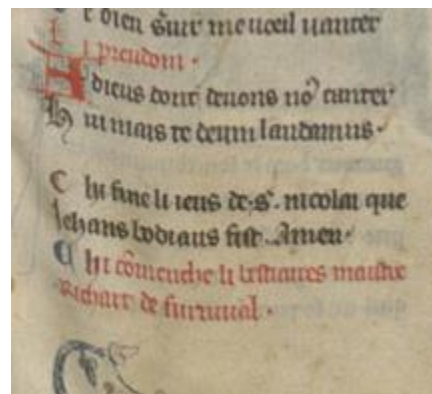 t bien seur me voeil vanter
li preudom.
A dieus dont devons nos canter
Hui mais te deum laudamus.
Chi fine li ieus de .S. nicolai que
Jehans bodiaus fist. Amen.
Chi cōmenche li bestiaires maistre
Richart de furnival.